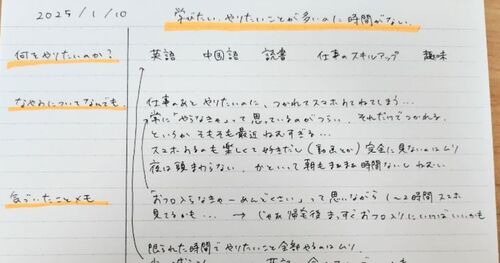 2025/1/10
学びたい、やりたいことが多いのに時間がない。
何をやりたいのか?
英語 中国語 読書 仕事のスキルアップ 趣味
なやみについてなんでも。
仕事のあとやりたいのに、つかれてスマホみてねてしまう…
常に"やらなきゃ"って思っているのがつらい。それだけでつかれる。
というかそもそも最近ねむすぎる…
スマホみるのも楽しくて好きだし(動画とか)完全に見ないのはムリ
夜は頭まわらない。かといって朝もまあまあ時間ないしねむい
気づいたことメモ
"おフロ入らなきゃーめんどくさい"って思いながら1~2時間スマホ
見てるかも… → じゃあ帰宅後まっすぐおフロ入りにいけばいいかも
限られた時間でやりたいこと全部やるのはムリ